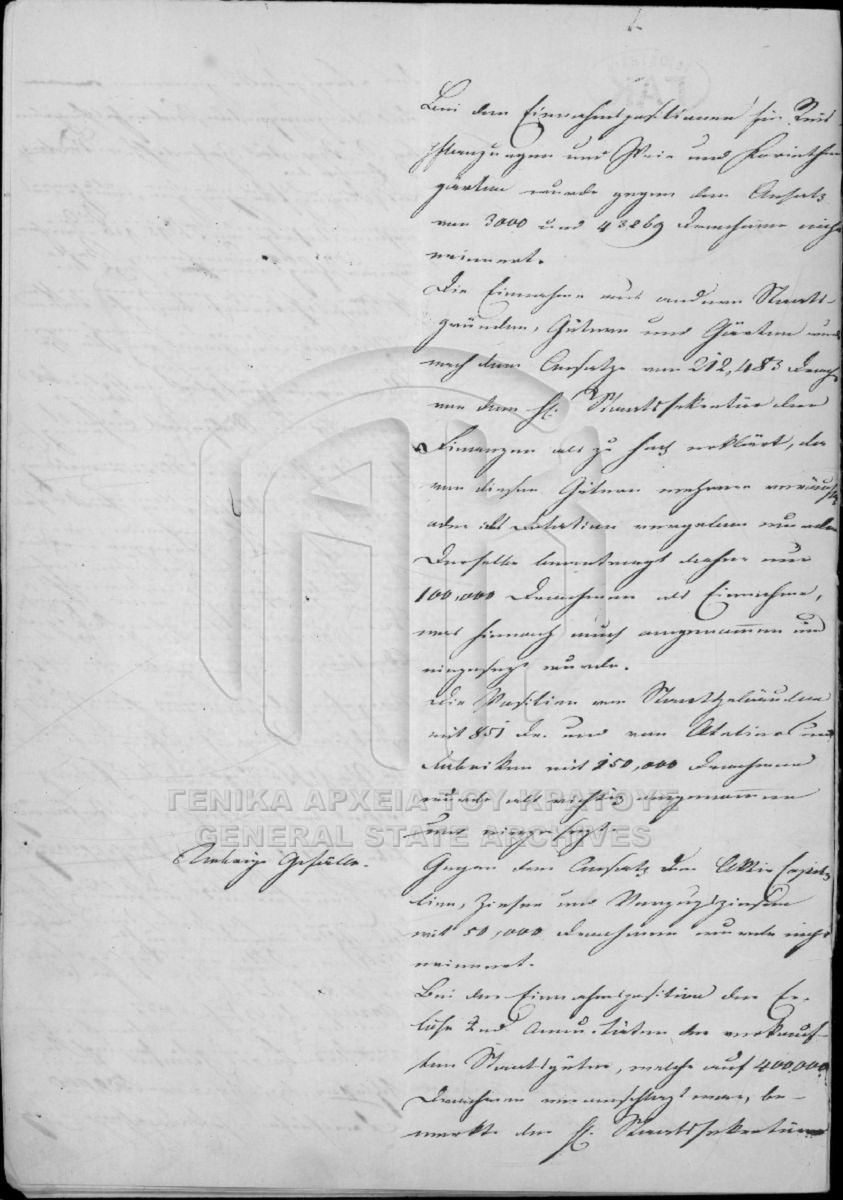 Bei den Einnahmspositionen für Reis-
pflanzungen und Wein und Korinthen
gärten wurde gegen den Ansatz
von 3000 und 43269 Drachmen nichts
erinnert.
Die Einnahme aus andern Staats-
gründen, Gütern und Gärten wird
nach dem Ansatze von 212,483 Drach.
von dem H. Staatssekretär der
Finanzen als zu hoch erklärt, da
von diesen Gütern mehrere veräußert
oder als Dotation vergeben wurden
Derselbe beantragt daher nur
100,000 Drachmen als Einnahme,
was hiernach auch angenommen und
eingesetzt wurde.
Die Position von Staatsgebäuden
mit 851 Dr. und von Ateliers und
Fabriken mit 250,000 Drachmen
wurde als richtig angenommen
und eingesetzt.
Uebrige Gefälle.
Gegen den Ansatz der Aktiv Capita-
lien, Zinsen und Verzugszinsen
mit 50,000 Drachmen wurde nichts
erinnert.
Bei der Einnahmsposition der Er-
löse und Annuitäten der verkauf-
ten Staatsgüter, welche auf 400000
Drachmen veranschlagt war, be-
merkte der H. Staatssekretär
ΓΕΝΙΚΑ ΑΡΧΕΙΑ ΤΟΥ ΚΡΑΤΟΥΣ
GENERAL STATE ARCHIVES